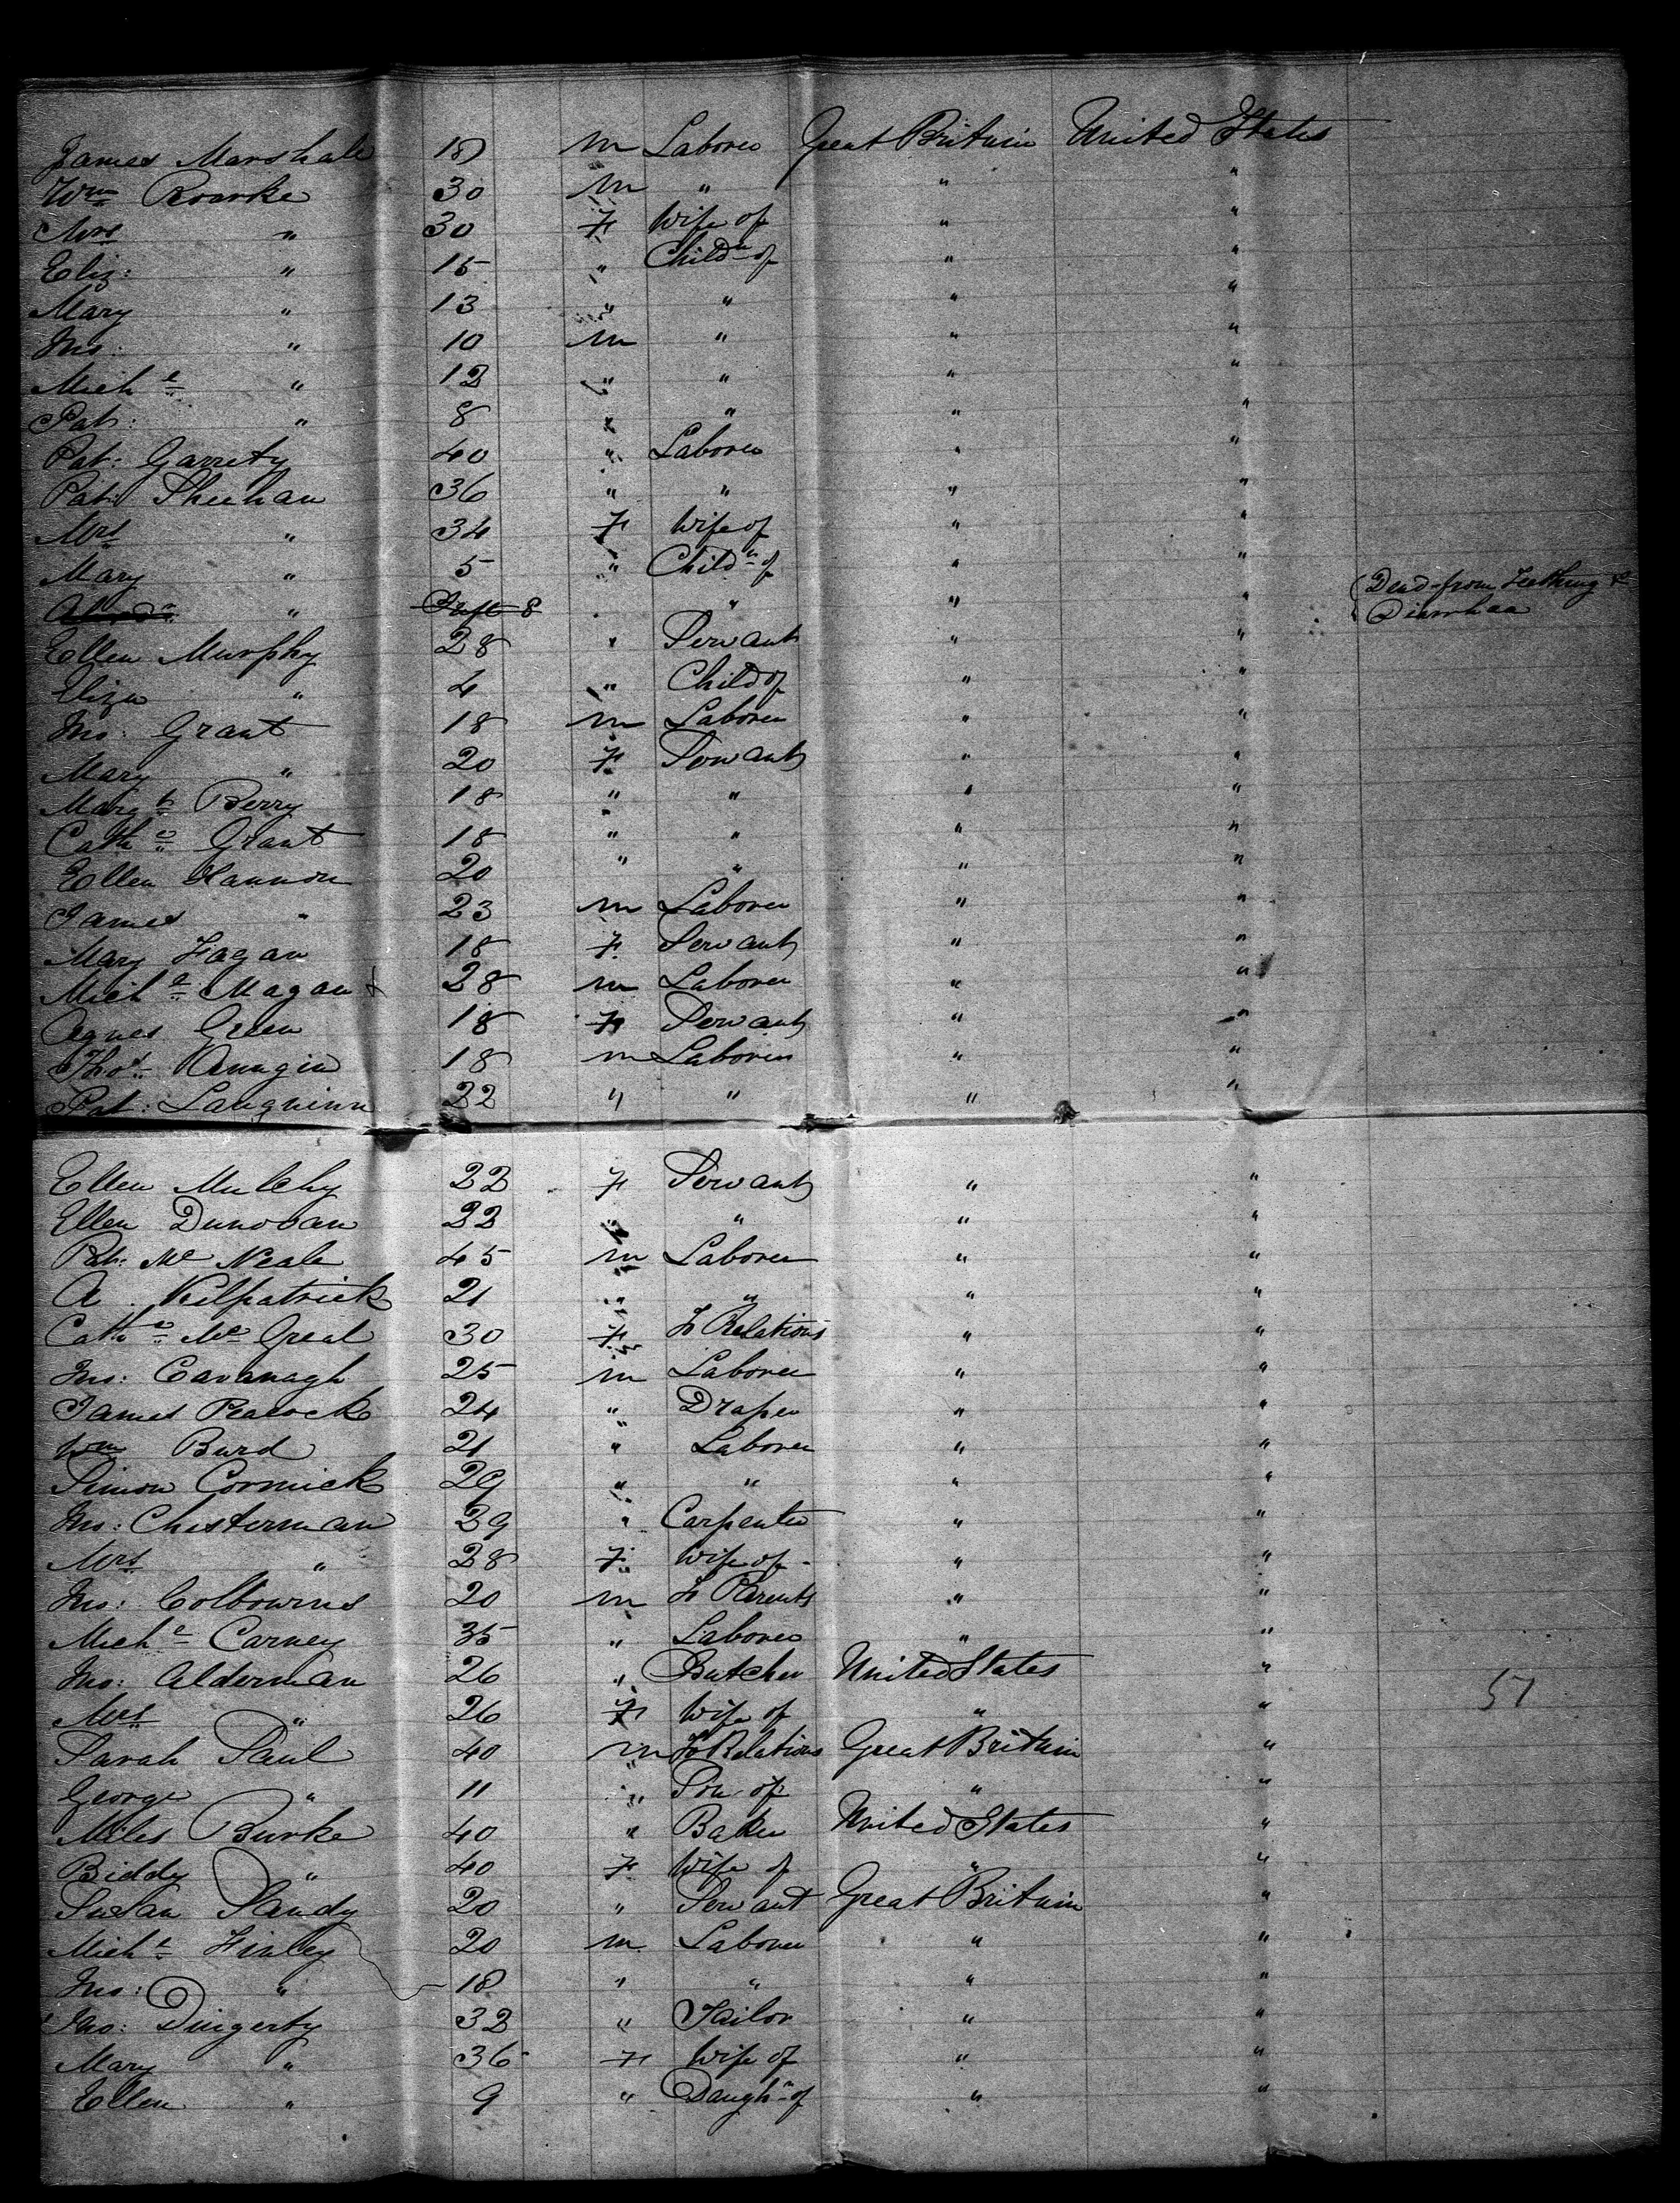 James Marshall 18 m Laborer Great Britain United States
Wm Rourke 30 m " " "
Mrs " 30 F Wife of " "
Eliz: " 15 " Childn of " "
Mary " 13 " " " "
Jno: " 10 m " " "
Michl " 12 " " " "
Pat: " 8 " " " "
Pat: Garrety 40 " Laborer " "
Pat: Sheehan 36 " " " "
Mrs " 34 F Wife of " "
Mary " 5 " Childn of " "
" Inft 8 " " " " Dead from Teething &
Diarrhaa
Ellen Murphy 28 " Servant " "
Eliza " 4 " Child of " "
Jno: Grant 18 m Laborer " "
Mary " 20 F Servant " "
Margt Berry 18 " " " "
Cathe Grant 18 " " " "
Ellen Hannon 20 " " " "
James " 23 m Laborer " "
Mary Fagan 18 F Servant " "
Michl Magan 28 m Laborer " "
Agnes Green 18 F Servant " "
Thos 18 m Laborer " "
Pat: 22 " " " "
Ellen Mulchy 22 F Servant " "
Ellen Dunovan 22 " " " "
Pat: Mc Neale 45 m Laborer " "
A. Kilpatrick 21 " " " "
Cathe Mc Greal 30 F To Relations " "
Jno: Cavanagh 25 m Laborer " "
James Peacock 24 " Draper " "
Wm Burd 21 " Laborer " "
Simon Cormick 29 " " " "
Jno: Chesterman 39 " Carpenter " "
Mrs " 28 F Wife of " "
Jno: Colbourns 20 m To Parents " "
Michl Carney 35 " Laborer " "
Jno: Alderman 26 " Butcher United States "
Mrs " 26 F Wife of " "
Sarah Paul 40 m To Relations Great Britain "
George " 11 " Son of " "
Miles Burke 40 " Baker United States "
Biddy " 40 F Wife of " "
Susan Handy 20 " Servant Great Britain "
Michl Finley 20 m Laborer " "
Jno: " 18 " " " "
Jno: Dingerty 32 " Tailor " "
Mary " 36 F Wife of " "
Ellen " 9 " Daughr of " "
51